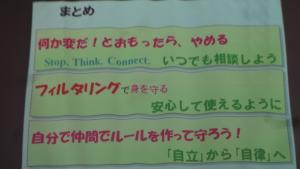 まとめ
何か変だ！とおもったら、やめる
Stop. Think. Connect. いつでも相談しよう
フィルタリングで身を守る
安心して使えるように
自分で仲間でルールを作って守ろう！
「自立」から「自律」へ